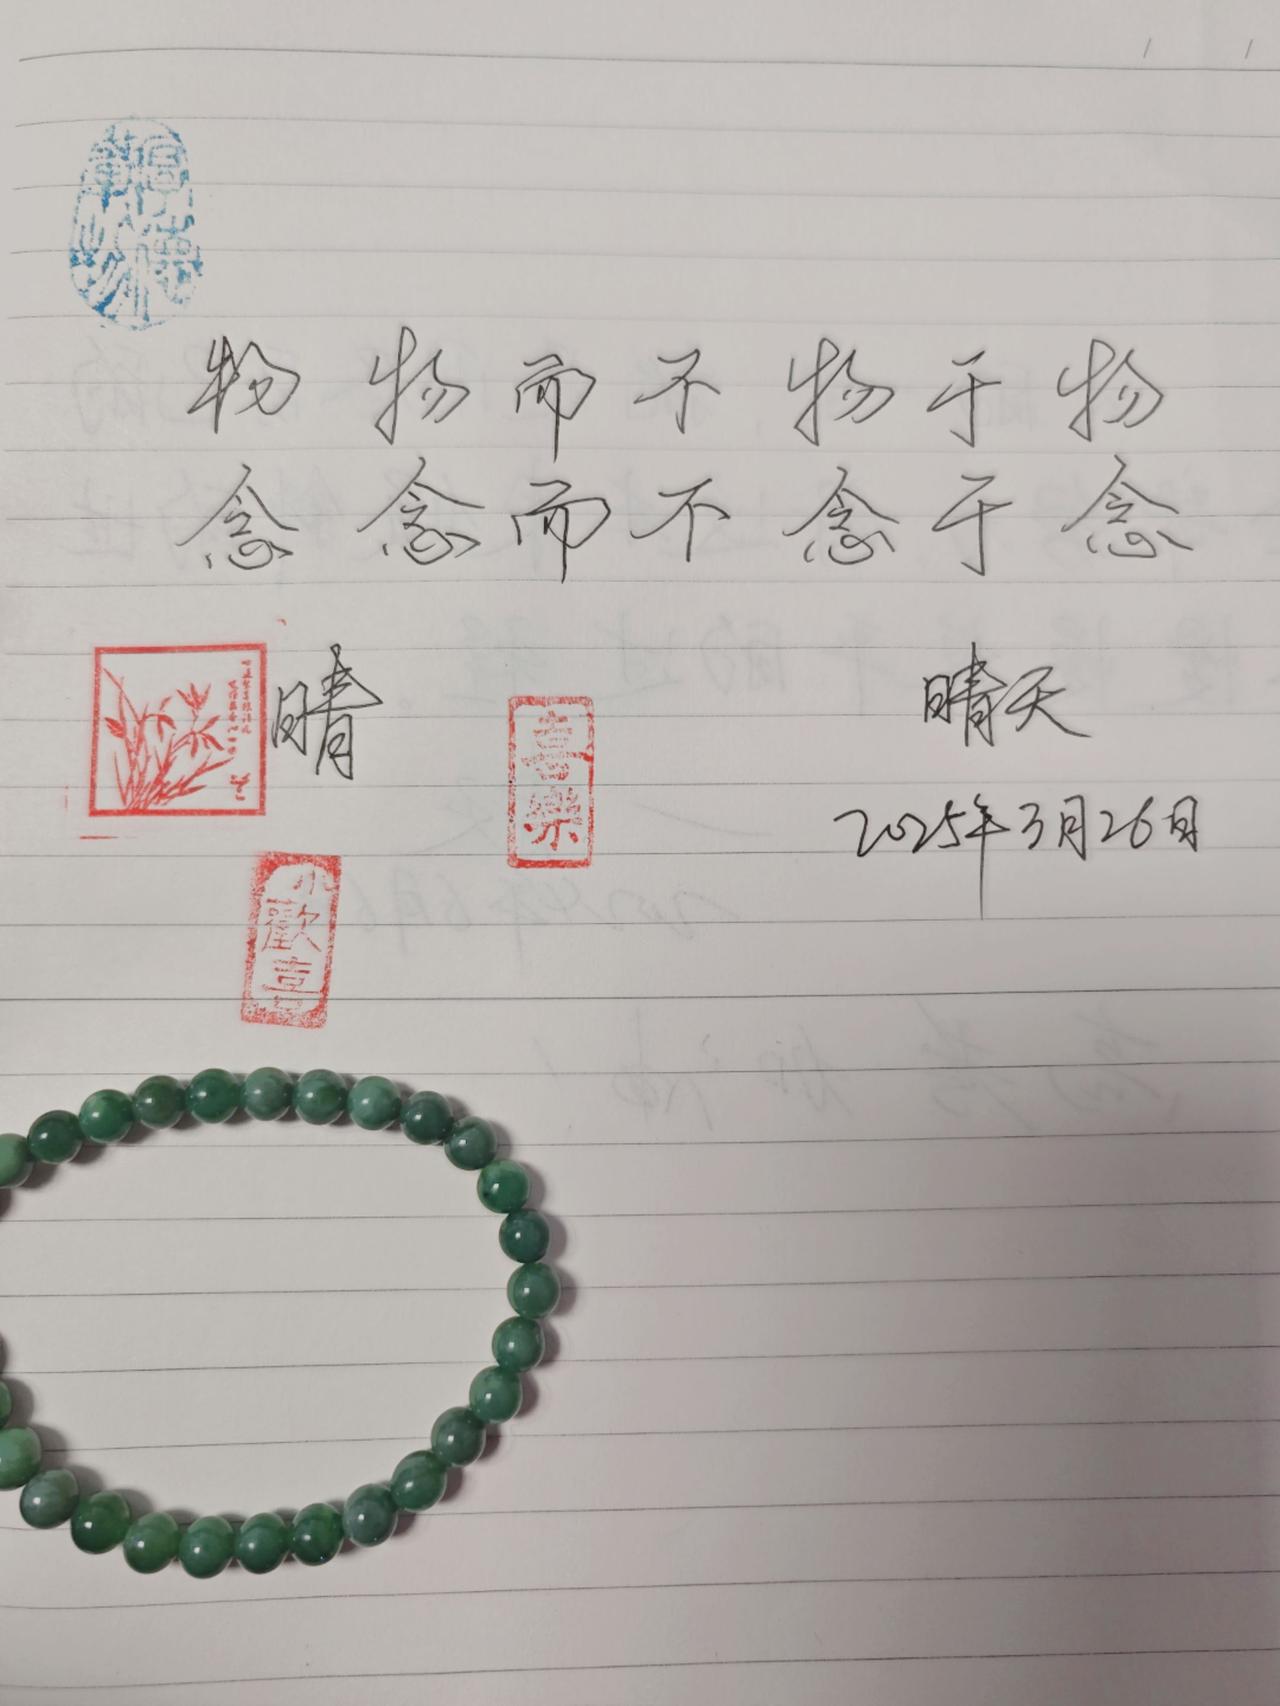 厚德载物
物物而不物于物
念念而不念于念
晴
晴天
喜樂
2025年3月26日
小歡喜